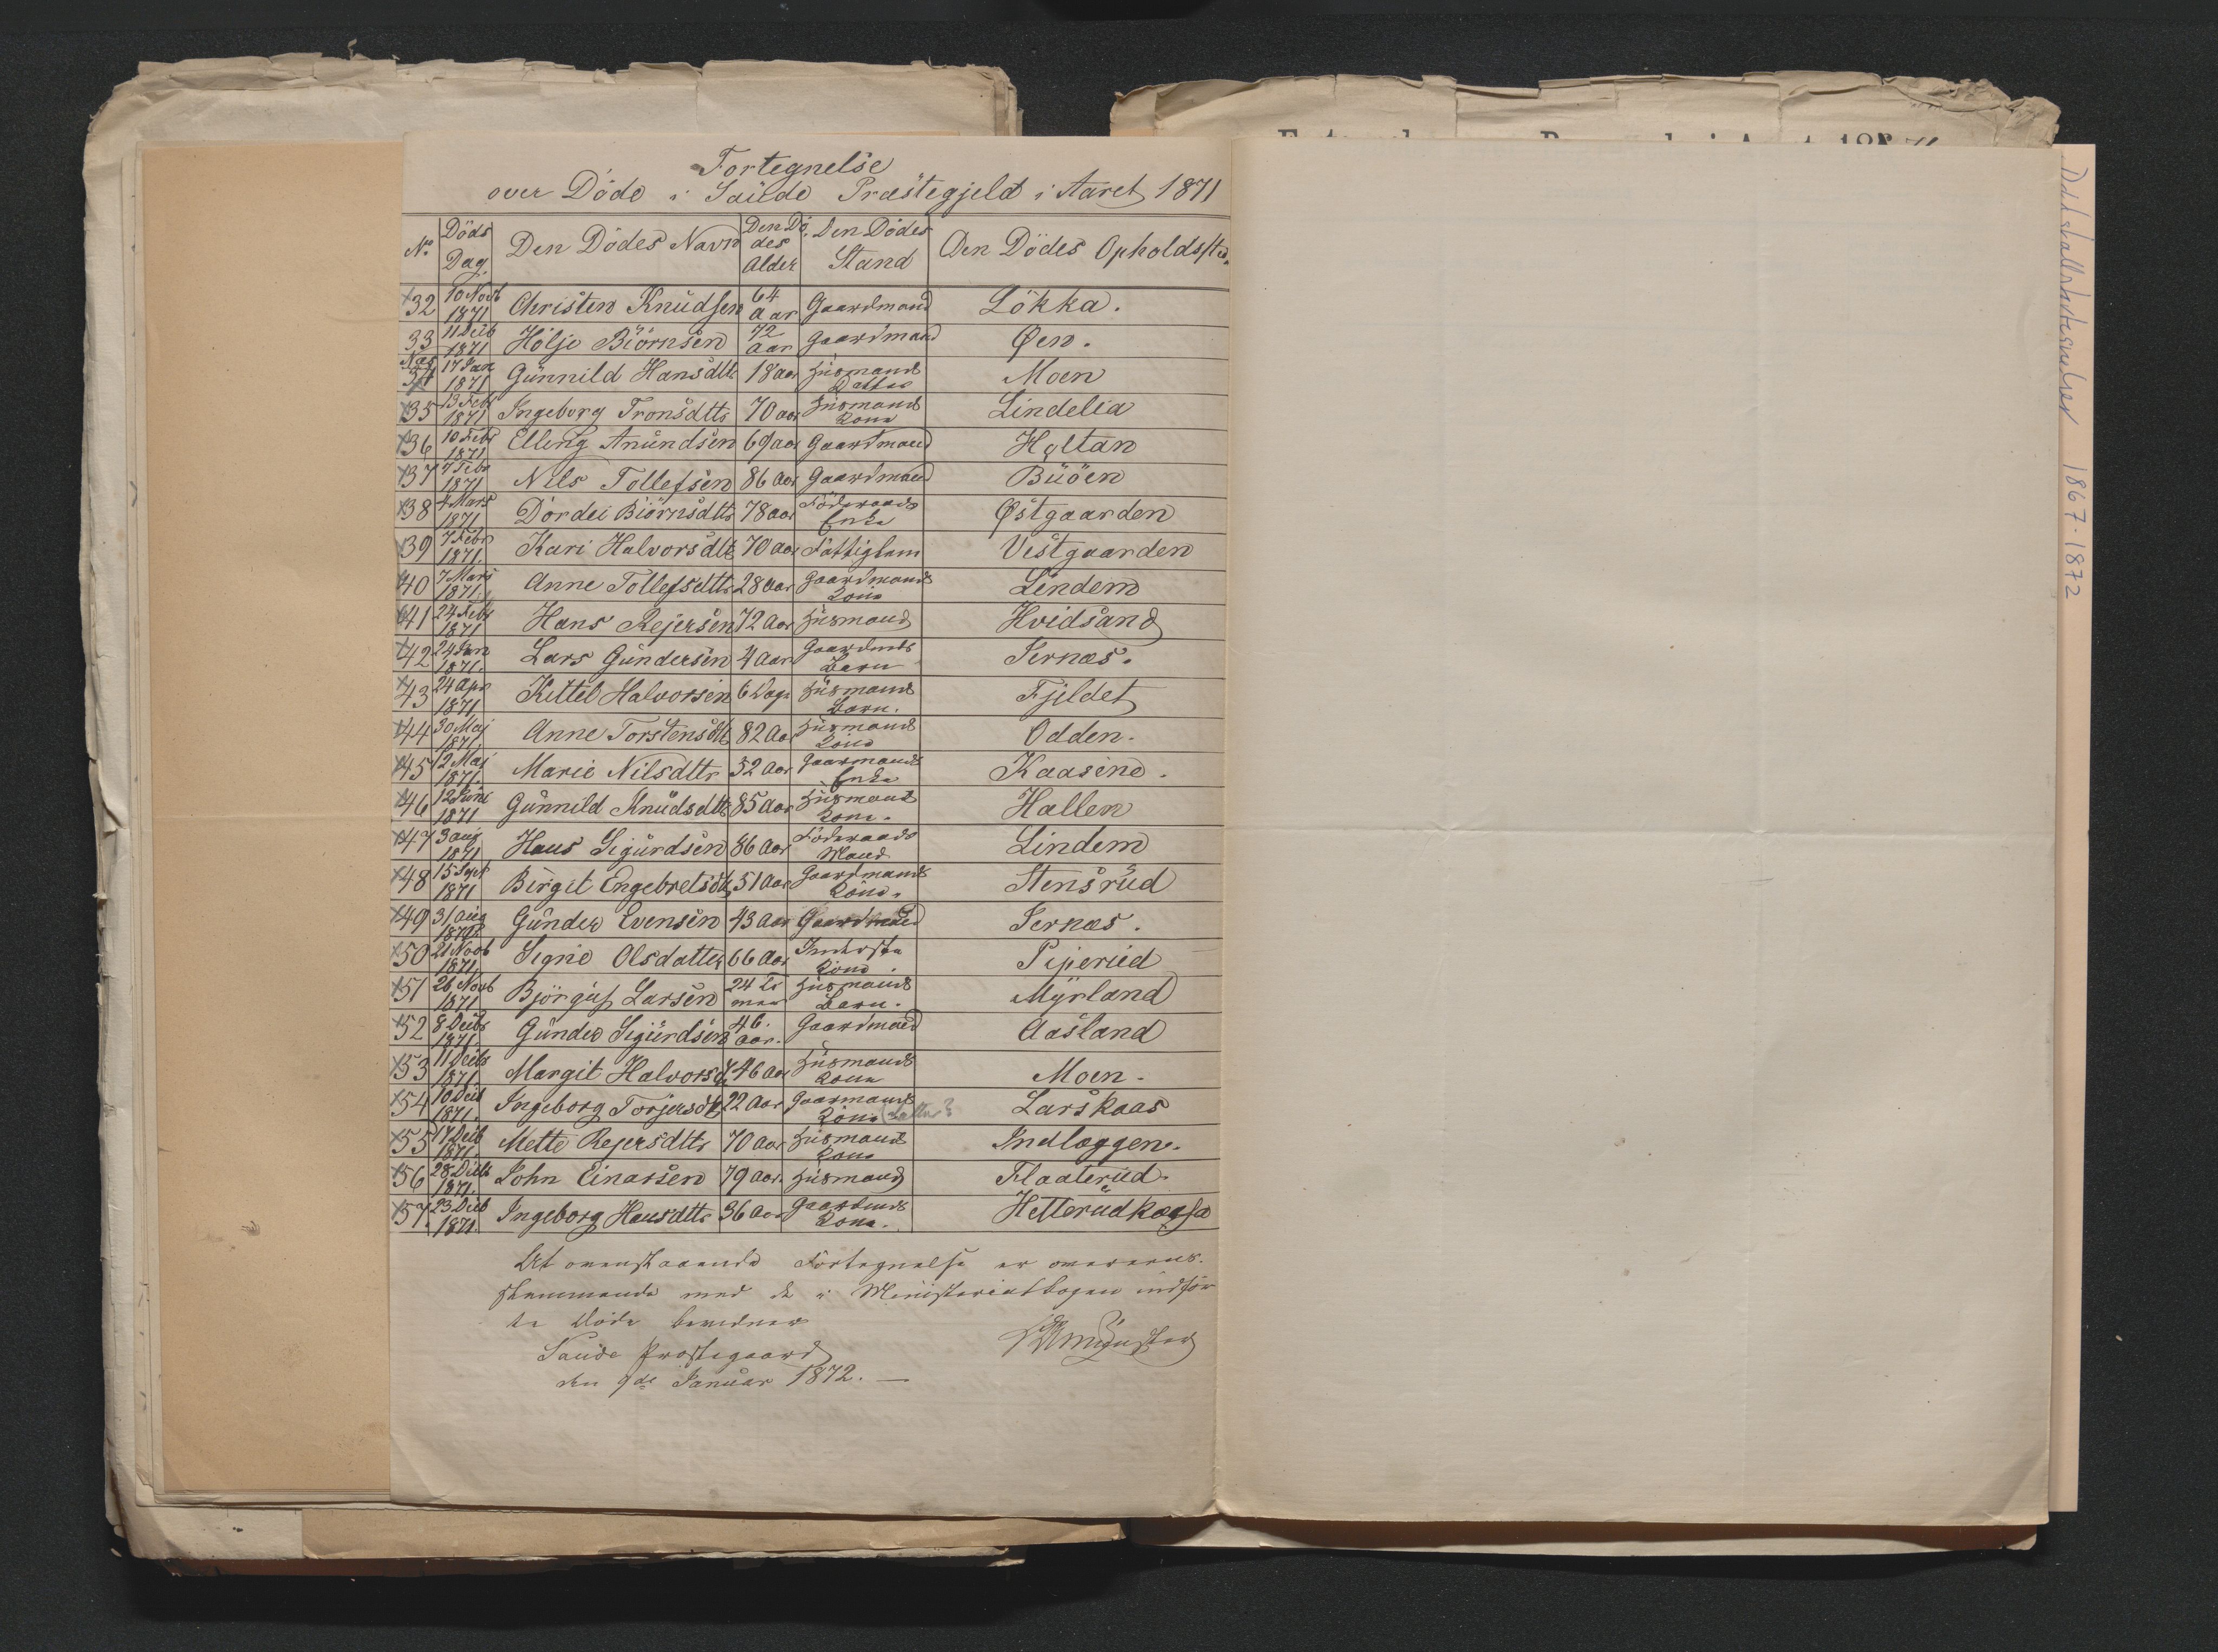 Fortegnelse
over Döde i Saude Præstegjeld i Aaret 1871
No Döds Dag. Den Dödes Navn Den Dödes Alder Den Dödes Stand Den Dödes Opholdsted.
32 10 Novb 1871 Christen Knudsen 64 Aar Gaardmand Lökka.
33 11 Decb 1871 Hölje Biörnsen 72 Aar Gaardmand Øen.
Næs
34 17 Jan 1871 Gunnild Hansdtt 18 aar Husmands Datter Moen
35 13 Febr 1871 Ingeborg Tronsdttr 70 aar Husmands Kone Lindelia
36 10 Febr 1871 Elling Anundsen 69 aar Gaardmand Holtan
37 7 Febr 1871 Nils Tollefsen 86 Aar Gaardmand Buöen
38 4 Mars 1871 Dordei Biörnsdttr 78 aar Föderaads Enke Østgaarden
39 7 Febr 1871. Kari Halvorsdtt 70 Aar Fattiglem Vestgaarden
40 7 Mars 1871. Anne Tollefsdttr 28 Aar Gaardmands Kone Lindem
41 24 Febr 1871 Hans Rejersen 72 Aar Husmand Hvidsand
42 24 Jan 1871. Lars Gundersen 4 Aar Gaardmds Barn Sernæs.
43 24 Apr 1871 Kittel Halvorsen 6 Dage Husmands Barn. Fjeldet
44 30 Maj 1871. Anne Torstensdtt 82 Aar Husmands Kone Odden.
45 12 Maj 1871. Marie Nilsdttr 52 Aar Gaarmands Enke Kaasene.
46 12 Juni 1871 Gunnild Knudsdtt 85 Aar Husmands Kone. Hallen
47 3 Aug 1871 Hans Sigurdsen 86 Aar Föderaads Mand Lindem
48 15 Sept 1871 Birgit Engebretsdtt 51 Aar Gaardmands Kone. Stensrud
49 31 Aug 1871. Gunder Evensen 43 Aar Gaardmand Sernæs.
50 21 Novb 1871. Signe Olsdatter 66 Aar Inderste Kone. Piperud
51 26 Novb 1871 Björguf Larsen 24 Timer Husmands Barn. Myrland
52 8 Decbr 1871. Gunder Sigurdsen 46. aar. Gaardmand Aasland
53 11 Decbr 1871. Margit Halvorsd 46 Aar Husmands Kone Moen.
54 10 Decb 1871. Ingeborg Torjersdtt 22 Aar Gaarmands Kone (Datter? Larskaas
55 17 Decb 1871. Mette Rejersdttr 70 Aar Husmands Kone Indlæggen.
56 28 Decbr 1871. John Einarsen 79 Aar. Husmand Flaaterud.
57. 23 Decb 1871. Ingeborg Hansdttr 36 Aar Gaardmds Kone. Hetterudkaasa
At ovenstaaende Fortegnelse er overens-
stemmende med de i Ministerialbogen indför-
te Döde bevidner
Saude Præstegaard
den 9de Januar 1872. —
Münster
Dødsfallsattester 1867-1872